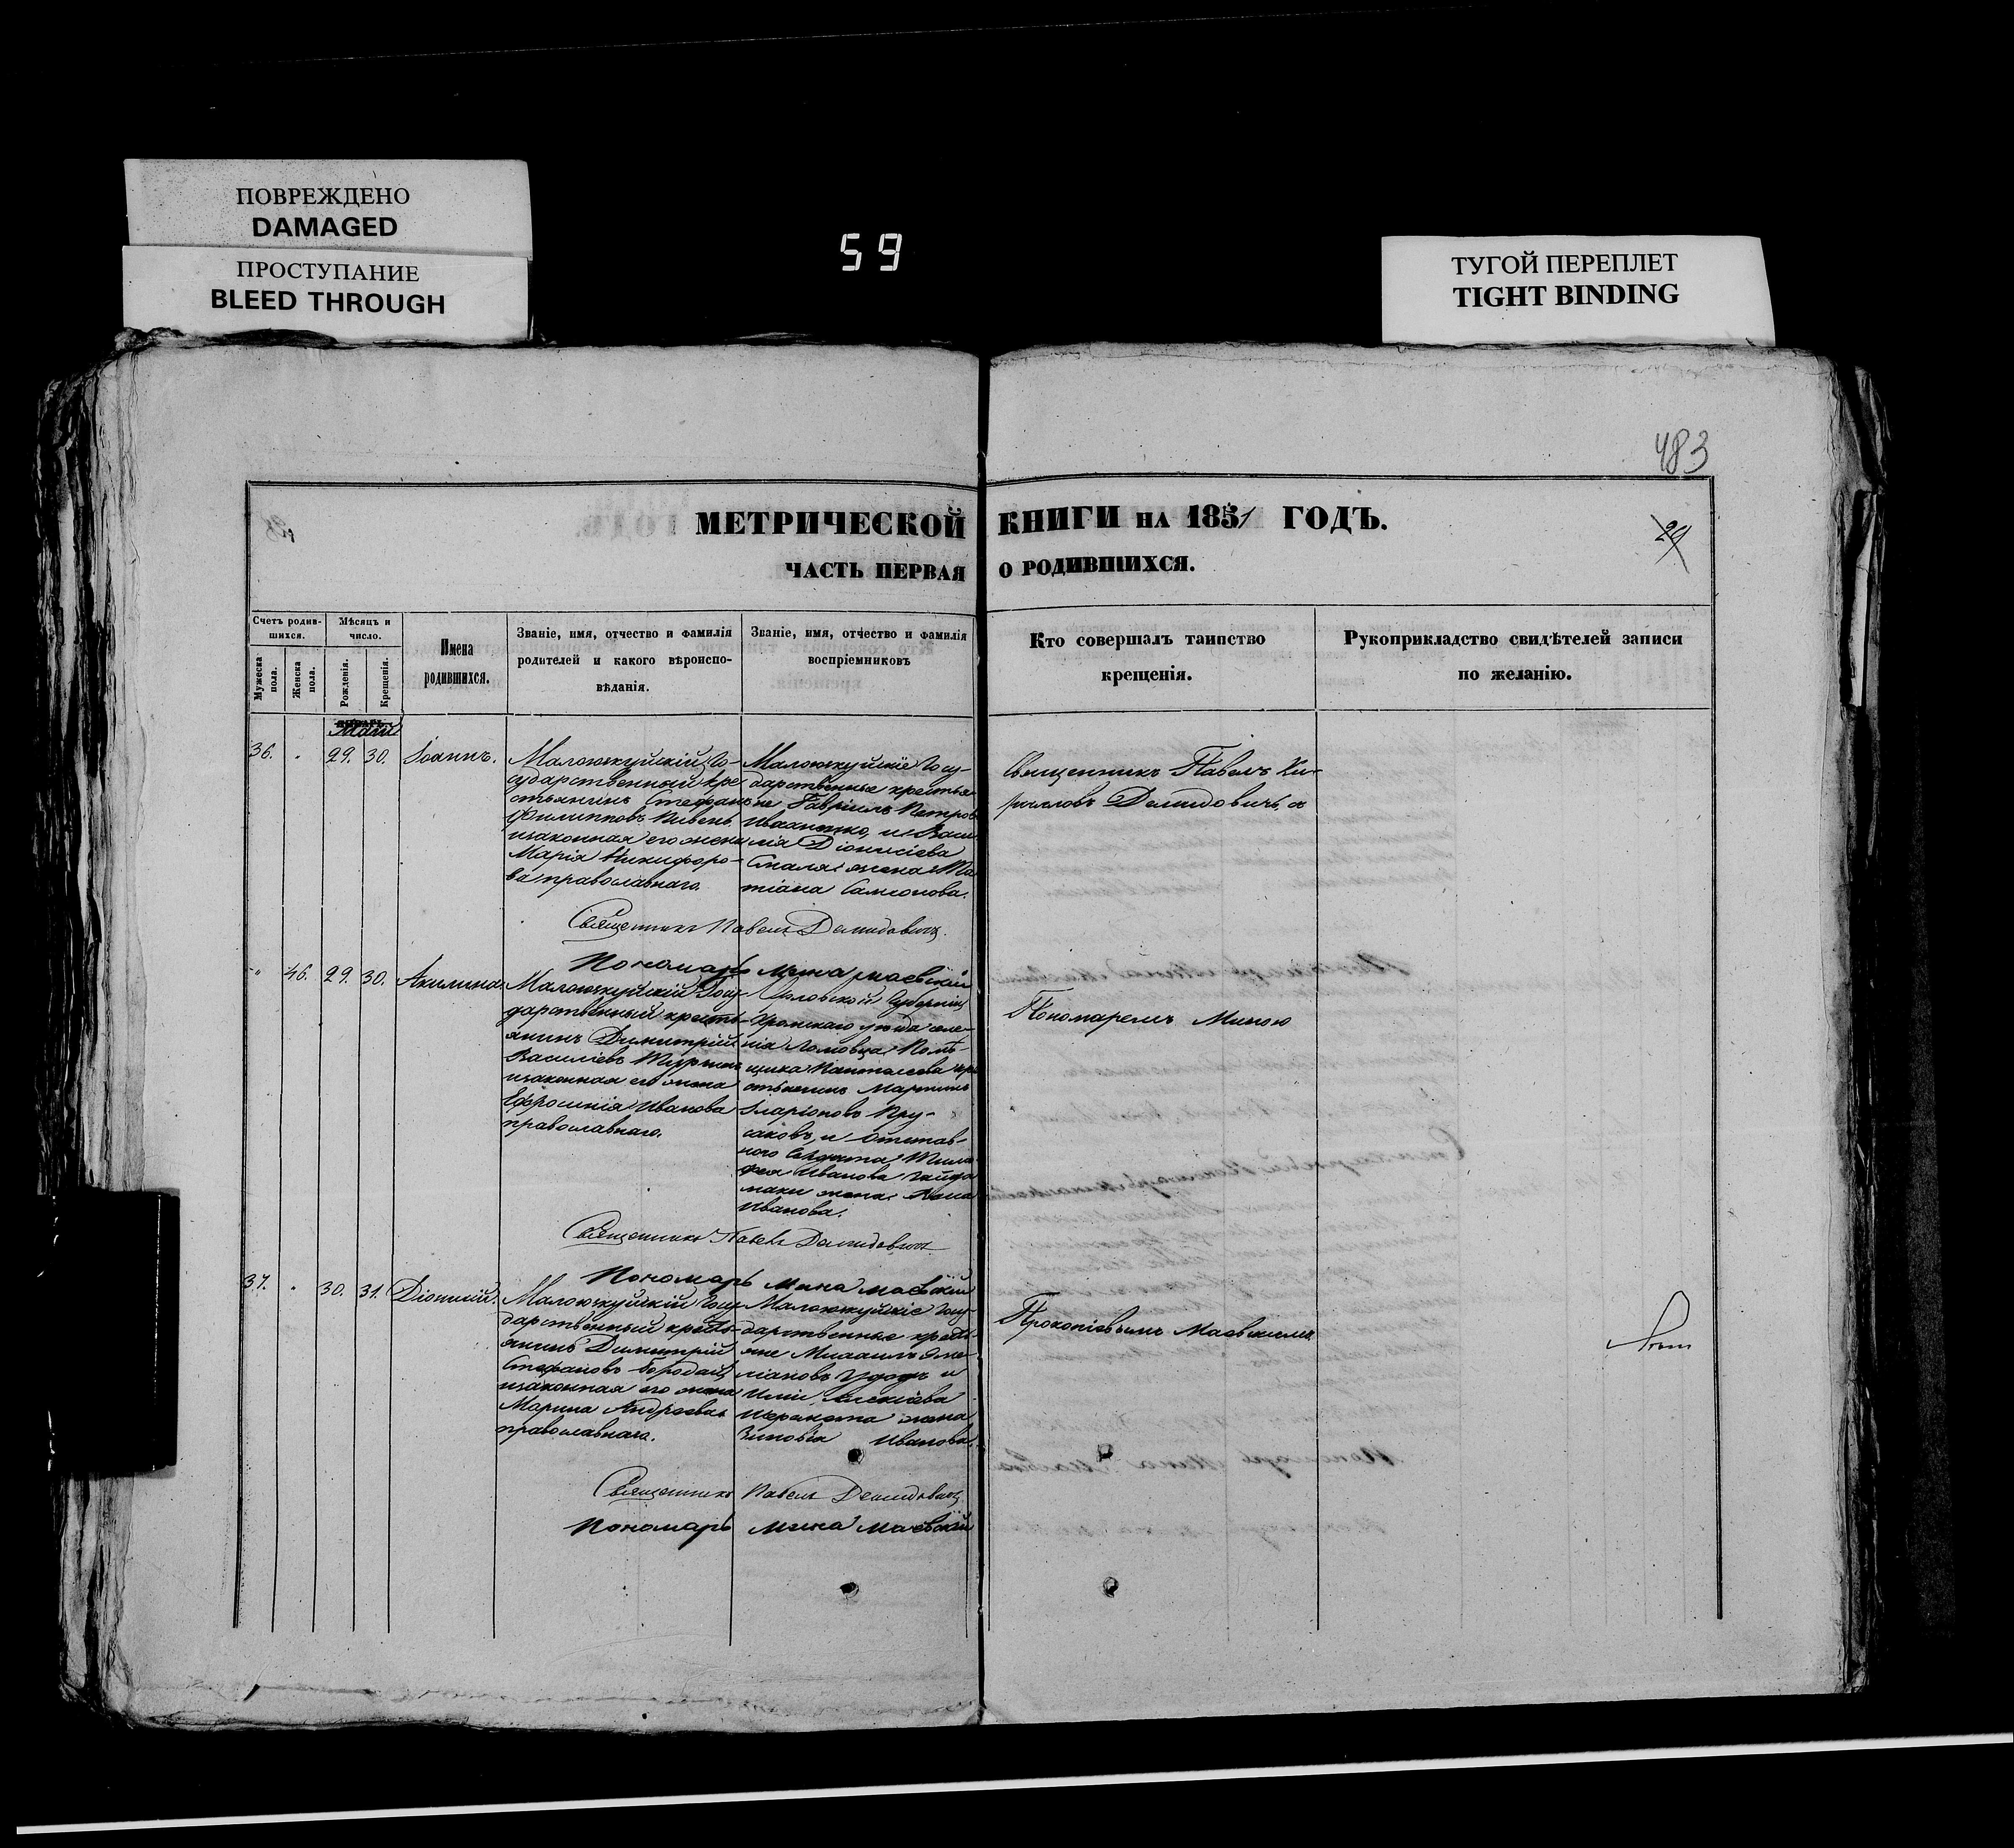 ПОВРЕЖДЕНО
DAMAGED
ПРОСТУПАНИЕ
BLEED THROUGH
59
ТУГОЙ ПЕРЕПЛЕТ
TIGHT BINDING
483
МЕТРИЧЕСКОЙ КНИГИ НА 1851 ГОДЪ.
29
ЧАСТЬ ПЕРВАЯ О РОДИВШИХСЯ.
Счетъ родив-
шихся.
Мужеска пола.
Женска пола.
Мѣсяцъ и
число.
Рожденія.
Крещенія.
Имена
родившихся.
Званіе, имя, отчество и фамилія
родителей и какого вѣроиспо-
вѣданія.
Званіе, имя, отчество и фамилія
воспріемниковъ
Кто совершалъ таинство
крещенія.
Рукоприкладство свидѣтелей записи
по желанію.
36. 29. 30. Іоаннъ.
Го-
сударственный кре
стьянинъ Стефанъ
Филипповъ
изаконная его жена
Марія Никифоро-
ва православнаго.
Госу-
дарственные крестья
не Гавріилъ Петров
Иваненко, и
Діонисіева
жена Та
тіана Самсонова.
Священникъ Павелъ Ки-
рилловъ Демидовичъ, с
Священникъ Павелъ Демидовичъ.
Пономарь Мина Маевскій
46. 29. 30. Акилина.
Госу-
дарственный кресть-
янинъ Димитрій
Василіевъ
изаконная его жена
Ефросинія Иванова
православнаго.
Орловской Губерніи
Кромскаго уѣзда селе-
нія Ломовца Помѣ-
щика
стьянинъ Мартинъ
Иларіоновъ Кру-
саковъ, и отстав-
ного Солдата
Иванова Гайда
маки жена Анна
Иванова.
Пономаремъ Миною
Священникъ Павелъ Демидовичъ
Пономарь Мина Маевскій
37. 30. 31. Діонисій.
Госу-
дарственный кресть-
янинъ Димитрій
Стефановъ Бородай,
изаконная его жена
Марина Андреева
православнаго.
Госу-
дарственные кресть-
яне Михаилъ Эме-
ліановъ и
Иліи Алексіева
жена
Зиновія Иванова.
Прокопіевымъ Маевскимъ
Священникъ Павелъ Демидовичъ
Пономарь Мина Маевскій